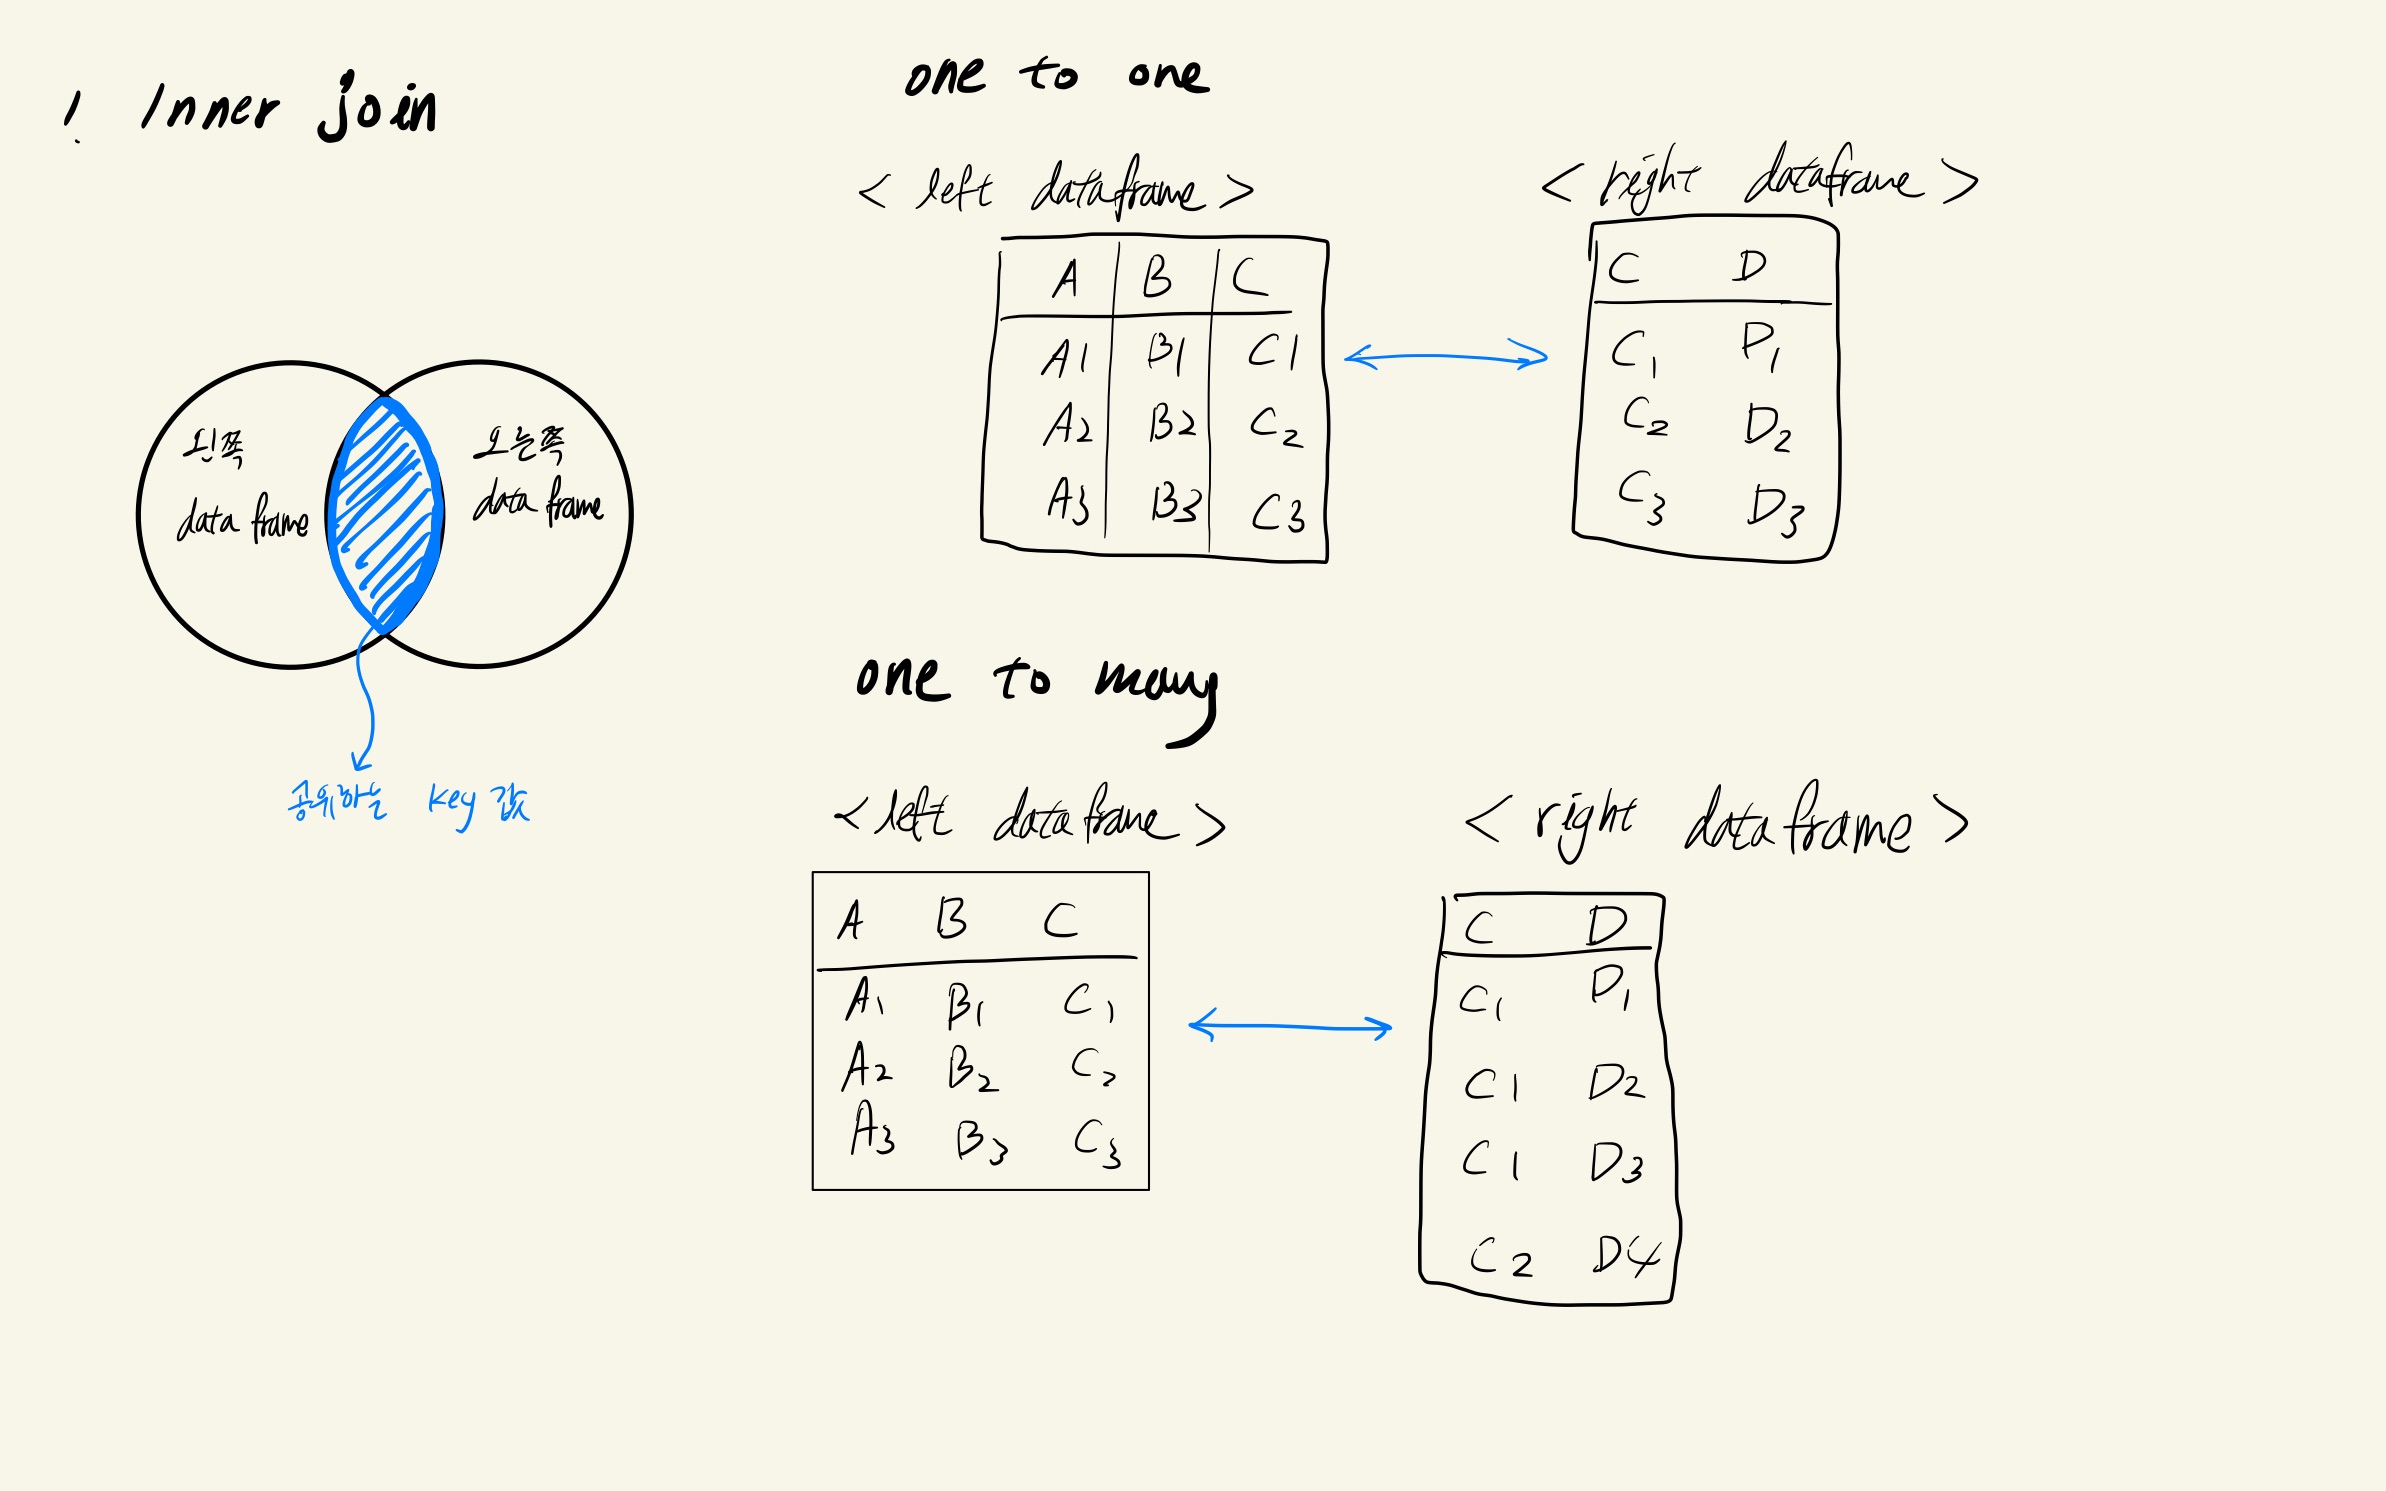 1. Inner join
왼쪽
data frame
오른쪽
data frame
공유하는 key 값
one to one
< left dataframe >
A B C
A1 B1 C1
A2 B2 C2
A3 B3 C3
< right dataframe >
C D
C1 D1
C2 D2
C3 D3
one to many
< left dataframe >
A B C
A1 B1 C1
A2 B2 C2
A3 B3 C3
< right dataframe >
C D
C1 D1
C1 D2
C1 D3
C2 D4